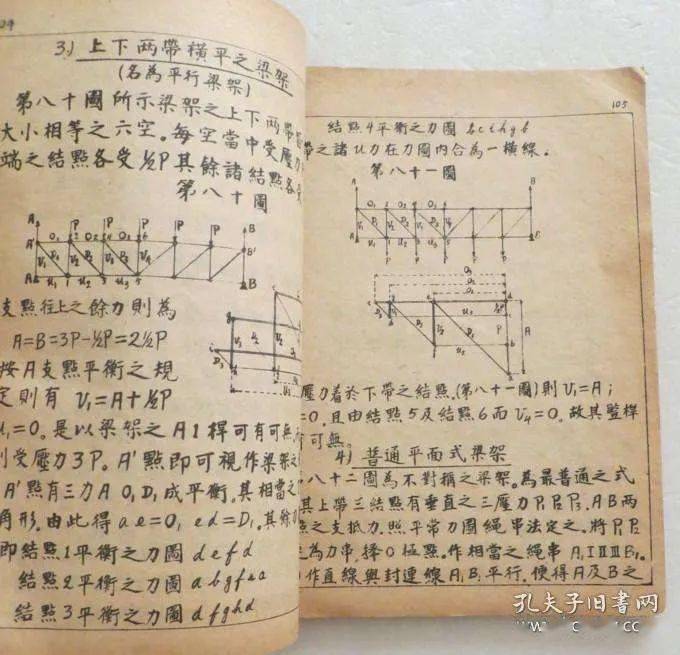 3) 上下两帶橫平之梁架
(名為平行梁架)
第八十圖所示梁架之上下两帶
大小相等之六空。每空當中受壓力
端之結點各受½P其餘諸結點各受
第八十圖
支點往上之餘力則為
A=B=3P-½P=2½P
按A支點平衡之規
定則有 V₁=A+½P
U₁=0。是以梁架之A1桿可有可無
受壓力3P。A'點即可視作梁架之
A'點有三力A O₁D₁成平衡。其相當之
角形。由此得 ae=O₁ ed=D₁。其餘
即結點1平衡之力圖 defd
結點2平衡之力圖 abgfea
結點3平衡之力圖 dfghd
105
結點4平衡之力圖 bcihgb
帶之諸U力在力圖內合為一橫線。
第八十一圖
壓力着於下帶之結點。(第八十一圖)則V₁=A；
=0。且由結點5及結點6而V₄=0。故其豎桿
可無。
4) 普通平面式梁架
八十二圖為不對稱之梁架。為最普通之式
其上帶三結點有垂直之三壓力P₁P₂P₃。AB两
點之支抵力。照平常力圖繩串法定之。將P₁P₂
為力串，擇O極點。作相當之繩串A₁ⅠⅡⅢB₁。
作直線與封連線A₁B₁平行。便得A及B之
孔夫子旧书网